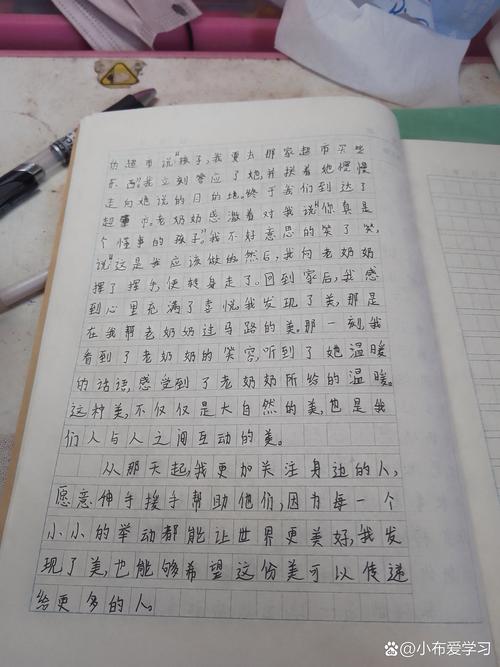 的超市说"孩子,我要去那家超市买些
东西"我立刻答应了她,并扶着她慢慢
走向她说的目的地。终于我们到达了
超市。老奶奶感激着对我说"你真是
个懂事的孩子。"我不好意思的笑了笑,
说"这是我应该做的,然后,我向老奶奶
挥了挥手,便转身走了。回到家后,我感
到心里充满了喜悦,我发现了美,那是
在我帮老奶奶过马路的美。那一刻,我
看到了老奶奶的笑容,听到了她温暖
的话语,感觉到了老奶奶所给的温暖。
这种美,不仅仅是大自然的美,也是我
们人与人之间互动的美。
从那天起,我更加关注身边的人,
愿意伸手援手帮助他们,因为每一个
小小的举动都能让世界更美好,我发
现了美,也能够希望这份美可以传递
给更多的人。
小布爱学习